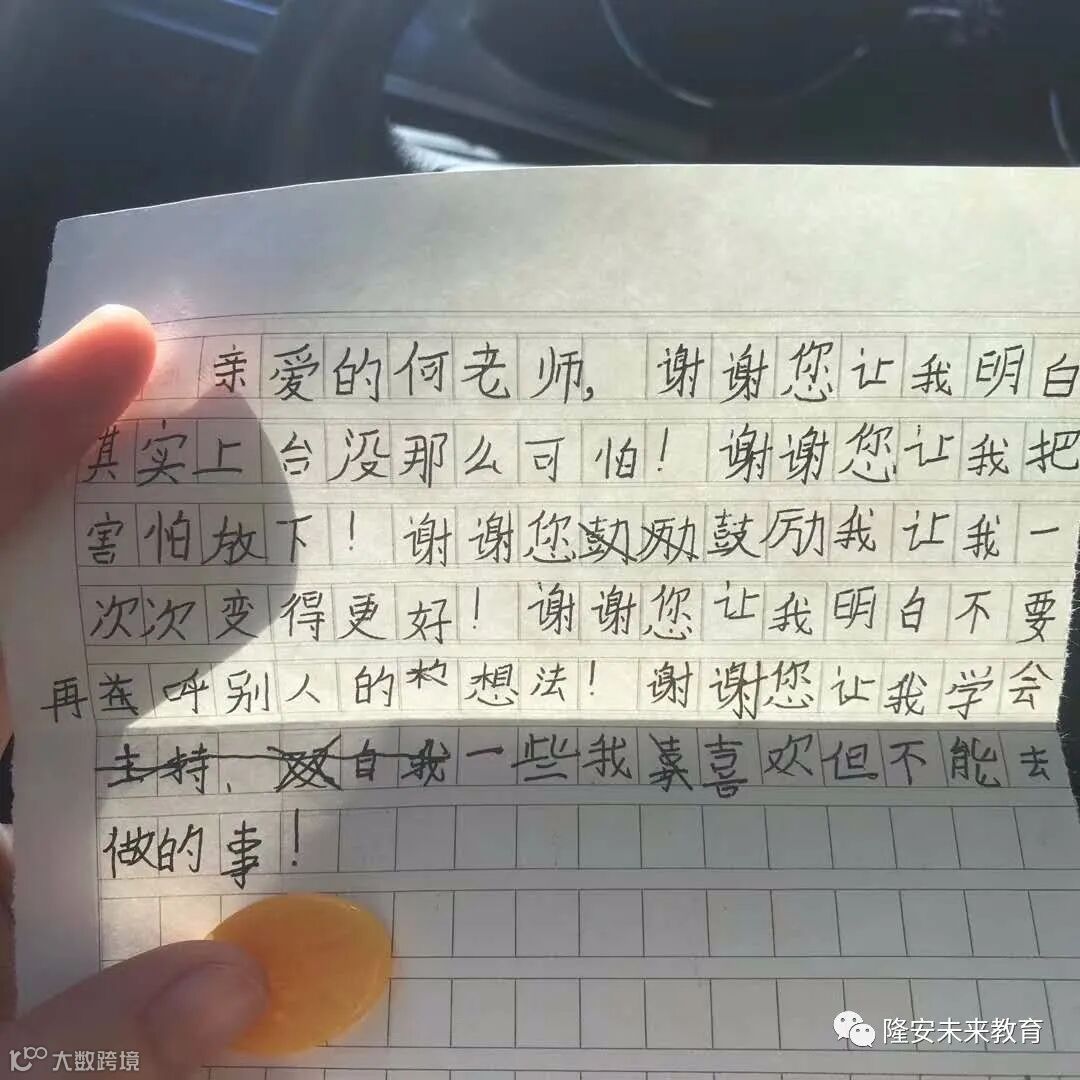 亲爱的何老师,谢谢您让我明白
其实上台没那么可怕!谢谢您让我把
害怕放下!谢谢您鼓励我让我一
次次变得更好!谢谢您让我明白不要
再在呼别人的想法!谢谢您让我学会
一些我喜欢但不能去
做的事!
隆安未来教育
大数跨境